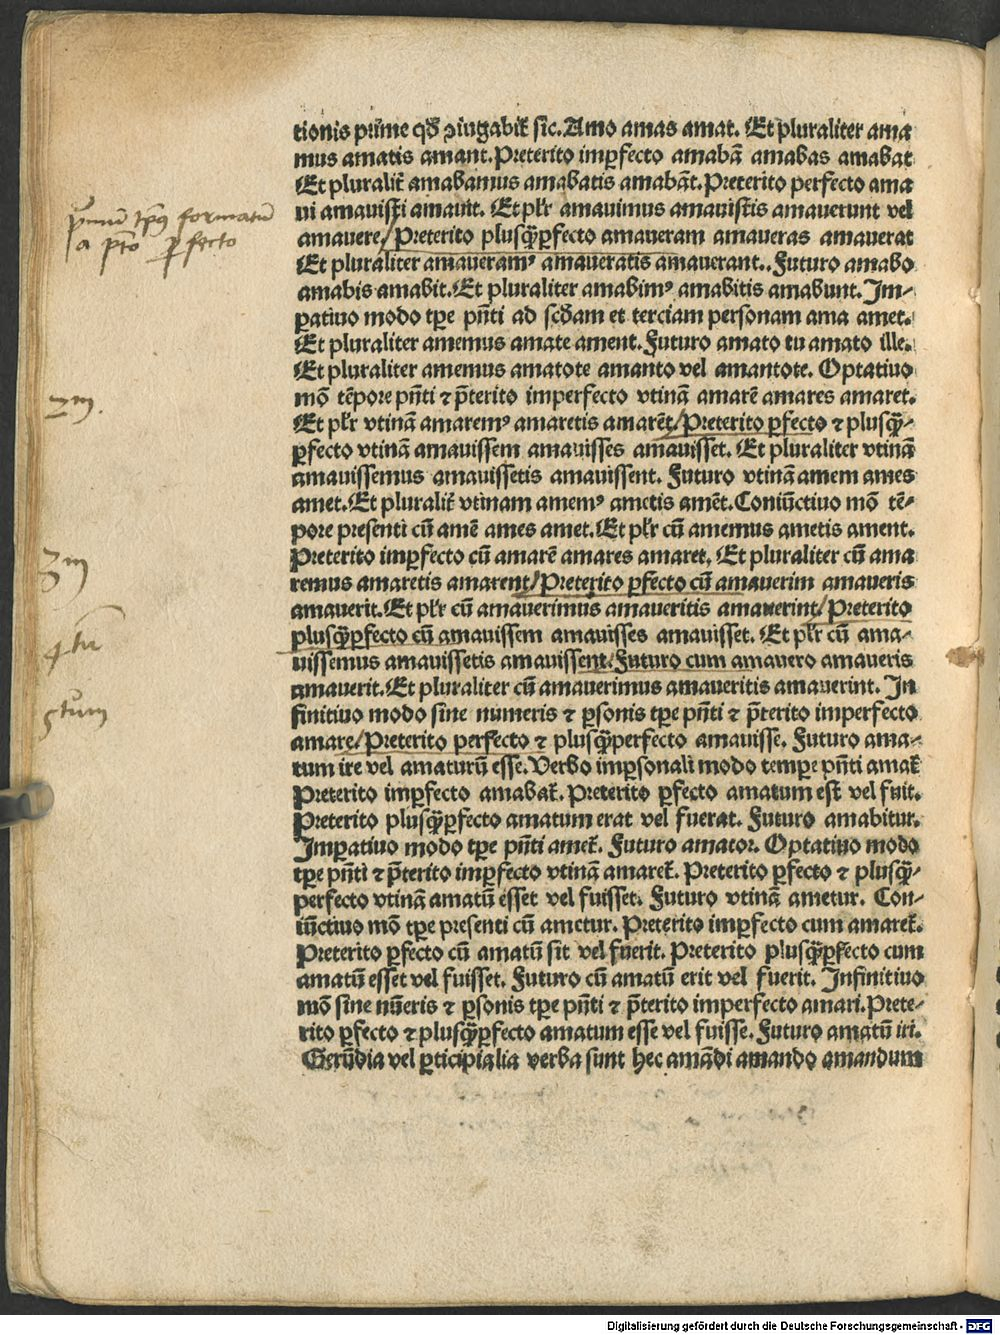 tionis prime qđ ꝯiugabit̃ sic. Amo amas amat. Et pluraliter ama
mus amatis amant. Preterito imꝑfecto amabã amabas amabat
Et pluralit̃ amabamus amabatis amabãt. Preterito perfecto ama
ui amauisti amauit. Et pl̃r amauimus amauistis amauerunt vel
amauere/ Preterito plusq̃ꝑfecto amaueram amaueras amauerat
Et pluraliter amaueramꝰ amaueratis amauerant.. Futuro amabo
amabis amabit. Et pluraliter amabimꝰ amabitis amabunt. Im-
ꝑatiuo modo tꝑe pñti ad scđam et terciam personam ama amet.
Et pluraliter amemus amate ament. Futuro amato tu amato ille.
Et pluraliter amemus amatote amanto vel amantote. Optatiuo
mõ tẽpore pñti ⁊ p̃terito imperfecto vtinã amarẽ amares amaret.
Et pl̃r vtinã amaremꝰ amaretis amarẽt/ Preterito ꝑfecto ⁊ plusq̃-
ꝑfecto vtinã amauissem amauisses amauisset. Et pluraliter vtinã
amauissemus amauissetis amauissent. Futuro vtinã amem ames
amet. Et pluralit̃ vtinam amemꝰ ametis amẽt. Coniũctiuo mõ tẽ-
pore presenti cũ amẽ ames amet. Et pl̃r cũ amemus ametis ament.
Preterito imꝑfecto cũ amarẽ amares amaret. Et pluraliter cũ ama
remus amaretis amarent/ Preterito ꝑfecto cũ amauerim amaueris
amauerit. Et pl̃r cũ amauerimus amaueritis amauerint/ Preterito
plusq̃ꝑfecto cũ amauissem amauisses amauisset. Et pl̃r cũ ama-
uissemus amauissetis amauissent. Futuro cum amauero amaueris
amauerit. Et pluraliter cũ amauerimus amaueritis amauerint. In
finitiuo modo sine numeris ⁊ ꝑsonis tꝑe pñti ⁊ p̃terito imperfecto
amare/ Preterito perfecto ⁊ plusq̃perfecto amauisse. Futuro ama-
tum ire vel amaturũ esse. Verbo imꝑsonali modo tempe pñti amat̃
Preterito imꝑfecto amabat̃. Preterito ꝑfecto amatum est vel fuit.
Preterito plusq̃ꝑfecto amatum erat vel fuerat. Futuro amabitur.
Imꝑatiuo modo tꝑe pñti amet̃. Futuro amator. Optatiuo modo
tꝑe pñti ⁊ p̃terito imꝑfecto vtinã amaret̃. Preterito ꝑfecto ⁊ plusq̃-
perfecto vtinã amatũ esset vel fuisset. Futuro vtinã ametur. Con-
iũctiuo mõ tꝑe presenti cũ ametur. Preterito imꝑfecto cum amaret̃.
Preterito ꝑfecto cũ amatũ sit vel fuerit. Preterito plusq̃ꝑfecto cum
amatũ esset vel fuisset. Futuro cũ amatũ erit vel fuerit. Infinitiuo
mõ sine nũeris ⁊ ꝑsonis tꝑe pñti ⁊ p̃terito imperfecto amari. Prete-
rito ꝑfecto ⁊ plusq̃ꝑfecto amatum esse vel fuisse. Futuro amatũ iri.
Gerũdia vel ꝑticipialia verba sunt hec amãdi amando amandum
p̃mũ tp̃s formatũ
a p̃to ꝑfecto
2m.
3m
4tũ
5tum
Digitalisierung gefördert durch die Deutsche Forschungsgemeinschaft - DFG